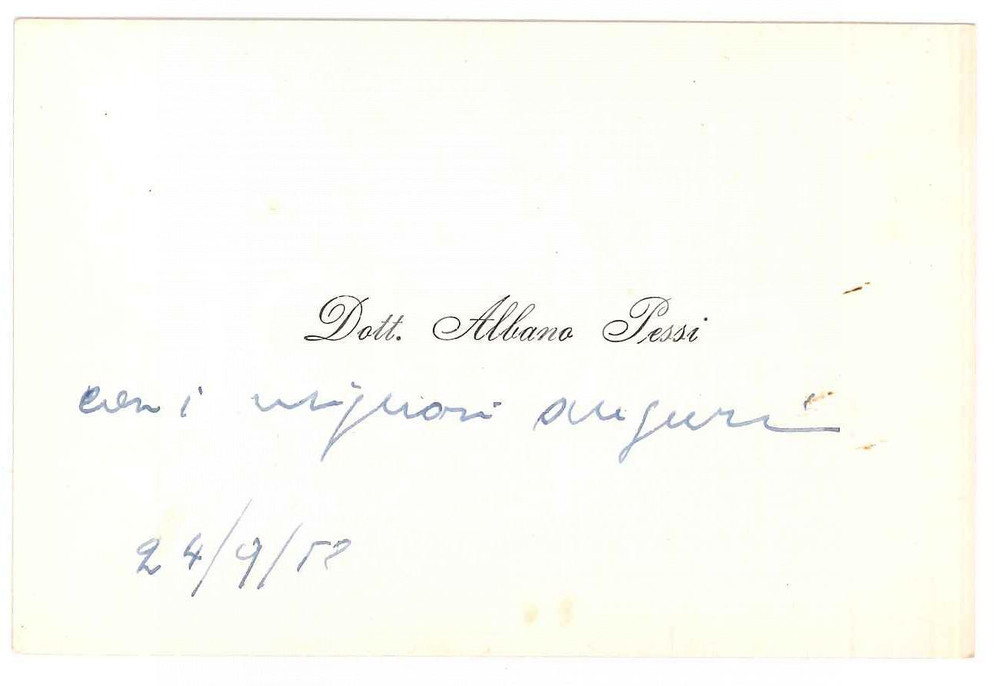 Dott. Albano Pessi
con i migliori auguri
24/9/52